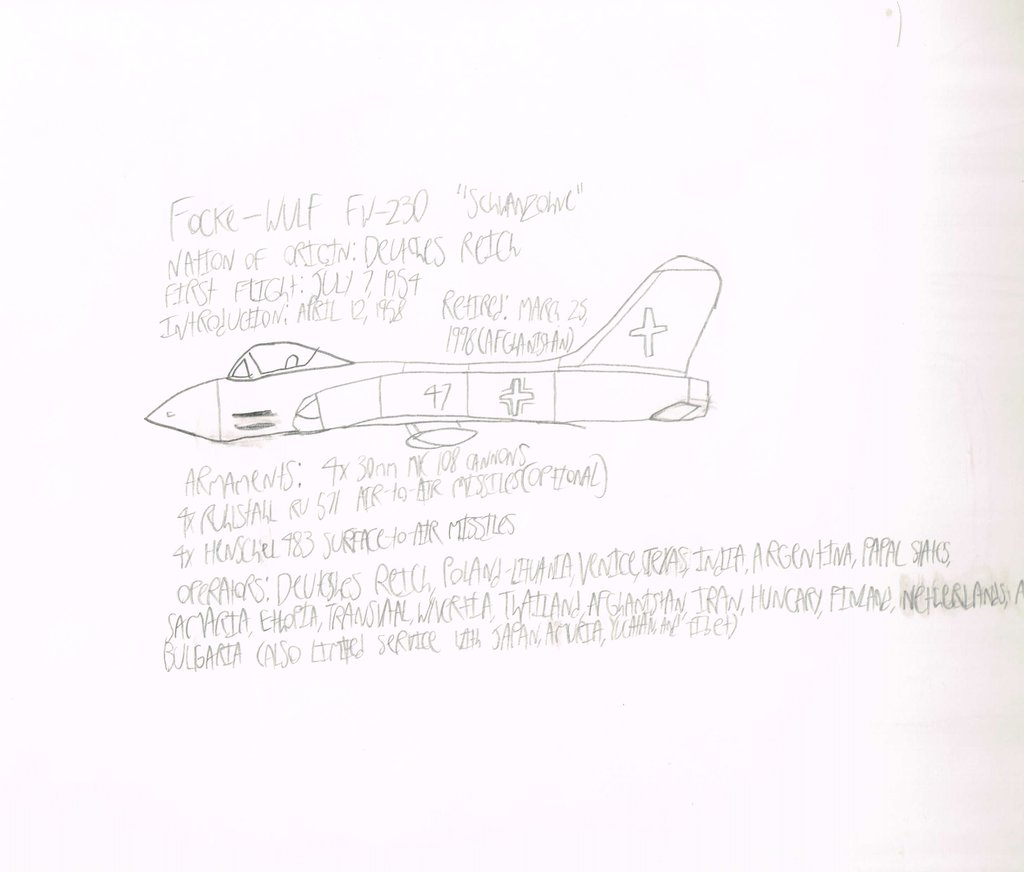 Focke-Wulf FW-230 "Schwanzohne"
Nation of origin: Deutches Reich
First flight: July 7, 1954
Introduction: April 12, 1958
Retired: March 25,
1996 (Afghanistan)
47
Armaments: 4x 30mm MK 108 cannons
4x Ruhlstahl RU 571 Air-to-Air missiles (optional)
4x Henschel 483 surface-to-air missiles
Operators: Deutsches Reich, Poland-Lithuania, Venice, Texas, India, Argentina, Papal States,
Ethiopia, Transvaal, Thailand, Afghanistan, Iran, Hungary, Finland, Netherlands,
Bulgaria (also limited service with Japan, Yucatan, and Tibet)